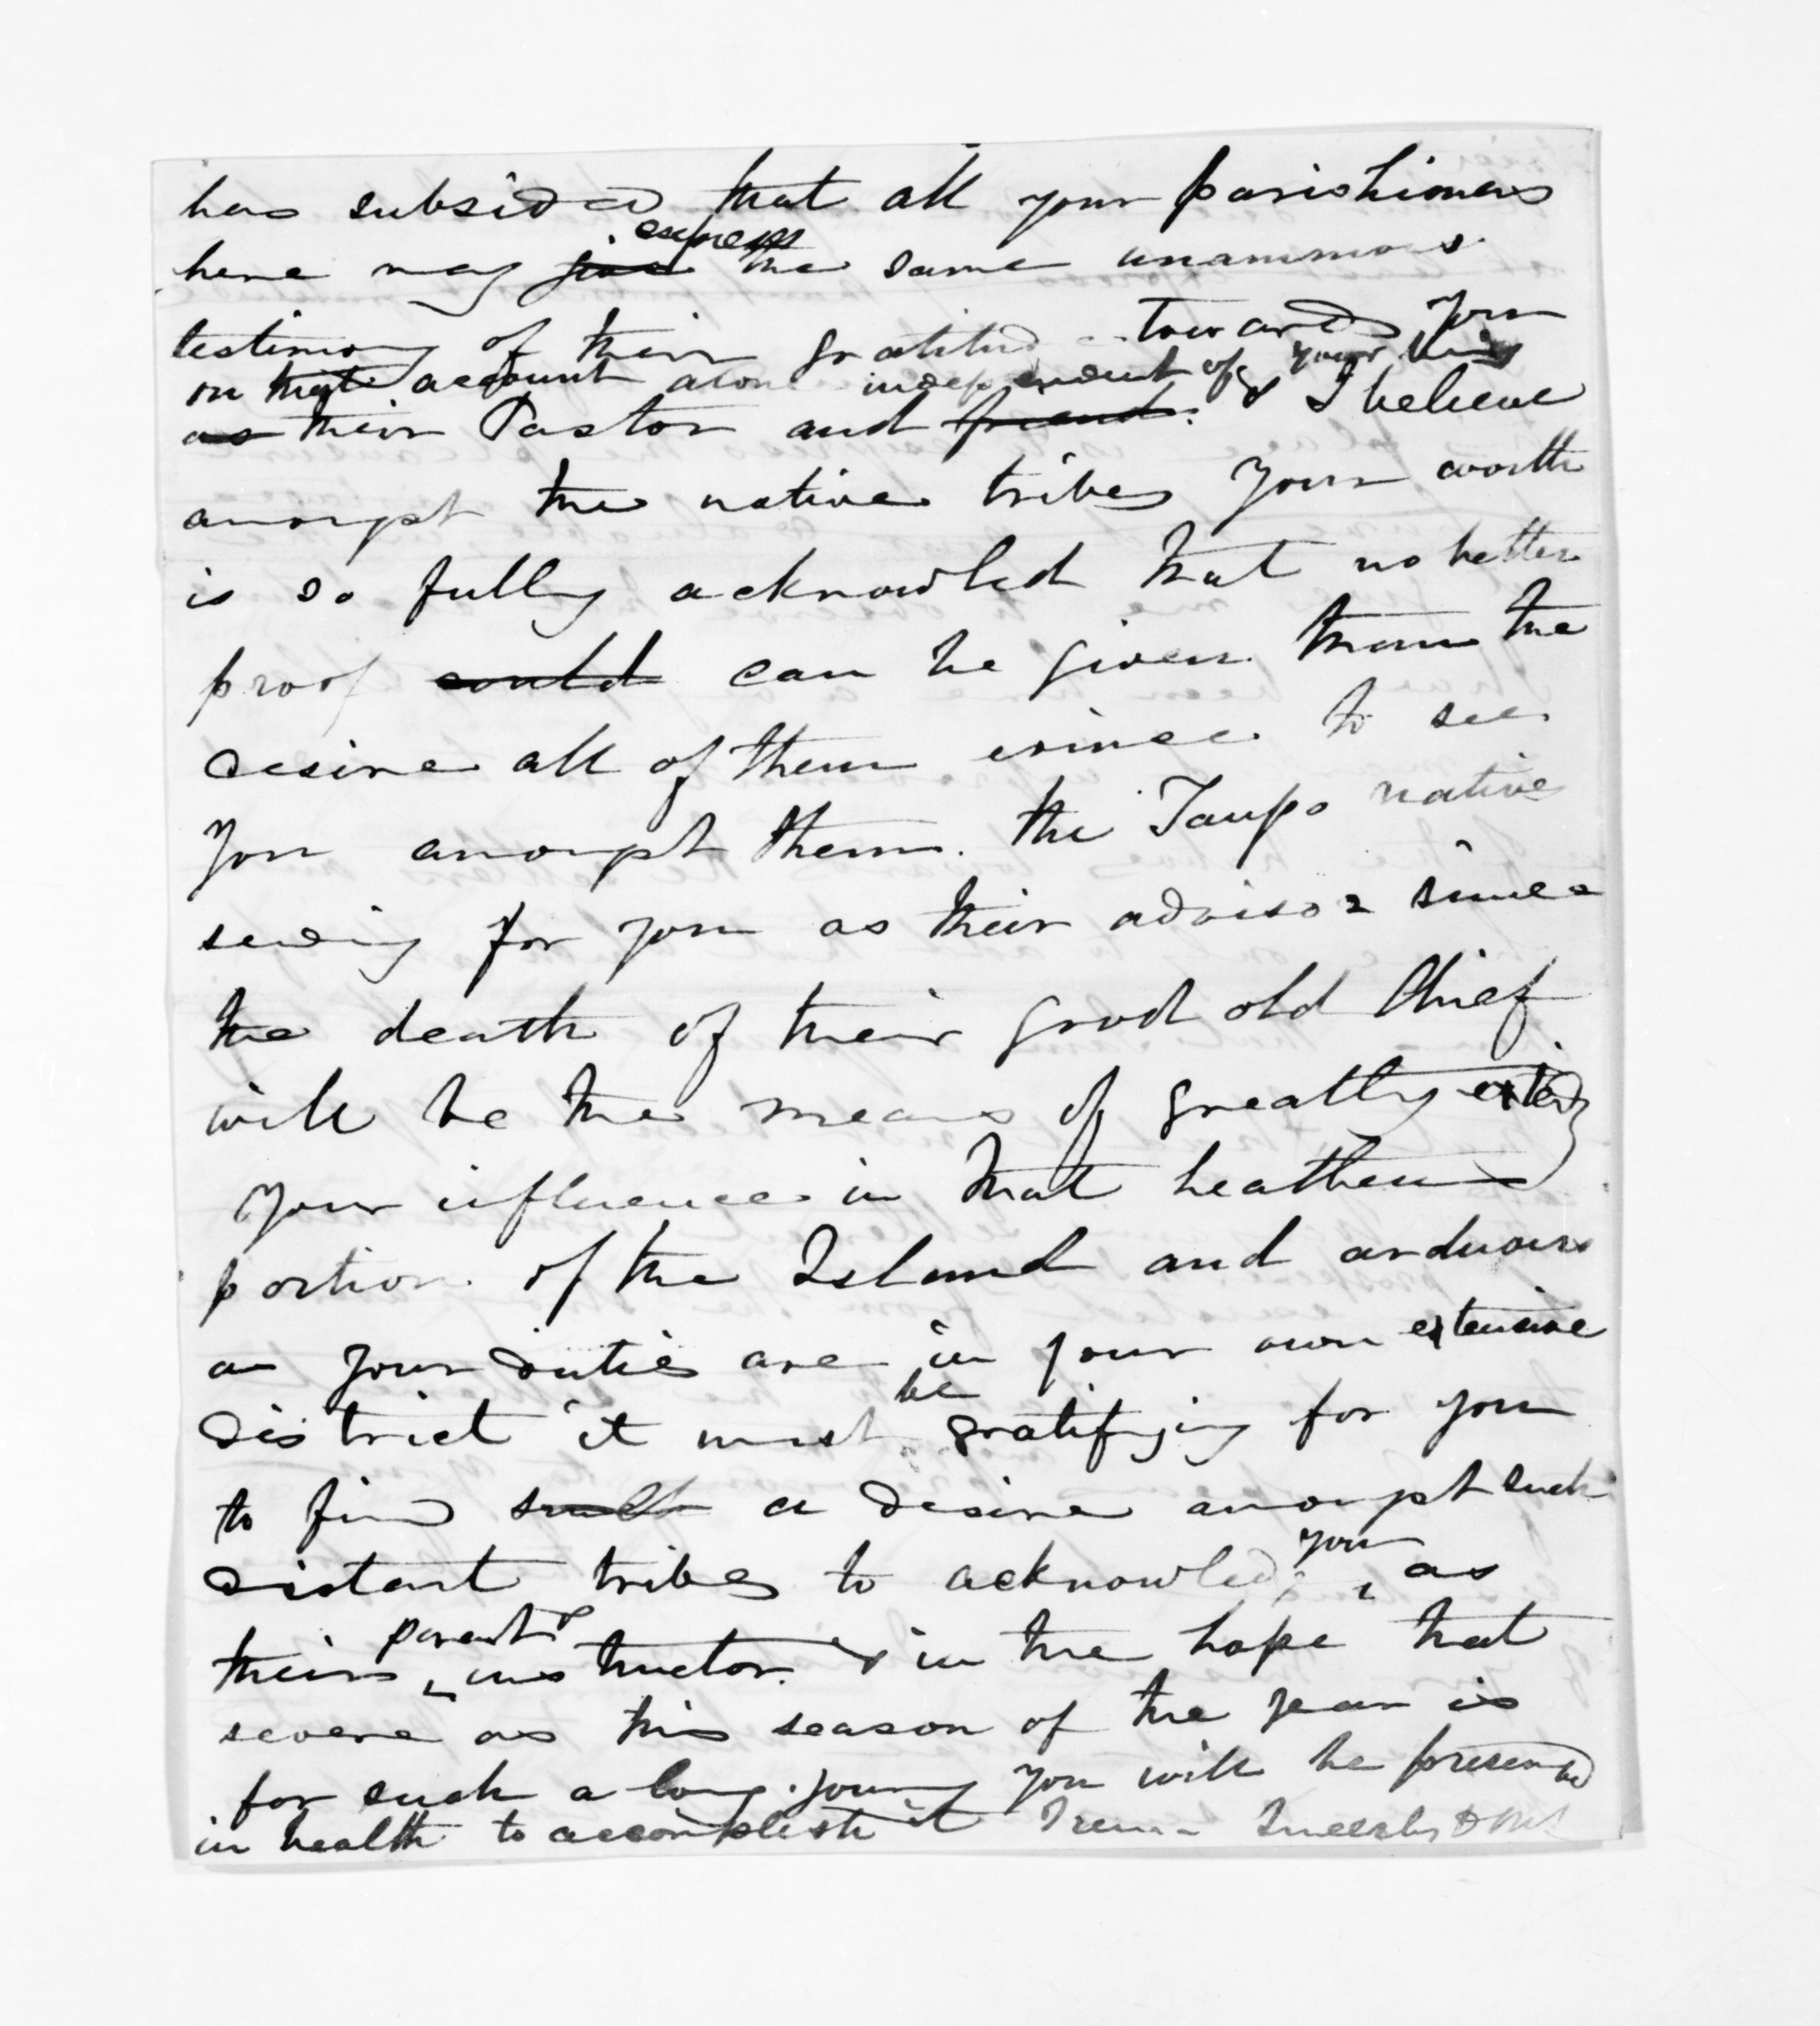 has subsided that all your parishioners
here may give express the same unanimous
testimony of their gratitude towards you
on that account alone independent of your being
as their Pastor and friend. & I believe
amongst the native tribes your worth
is so fully acknowled that no better
proof could can be given than the
desire all of them evince to see
you amongst them. the Taupo natives
sending for you as their advisor since
the death of their good old Chief
will be the means of greatly extendg
your influence in that heathen
portion of the Island and arduous
as your duties are in your own extensive
district it must be gratifying for you
to find such a desire amongst such
distant tribes to acknowledge you as
their parent & instructor. & in the hope that
severe as this season of the year is
for such a long journey you will be preserved
in health to accomplish it